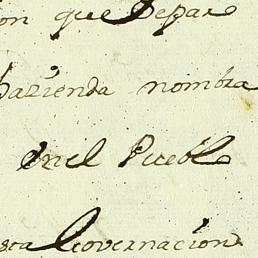 on que Separ
hazienda nombra
en el Pueblo
sta Governacion